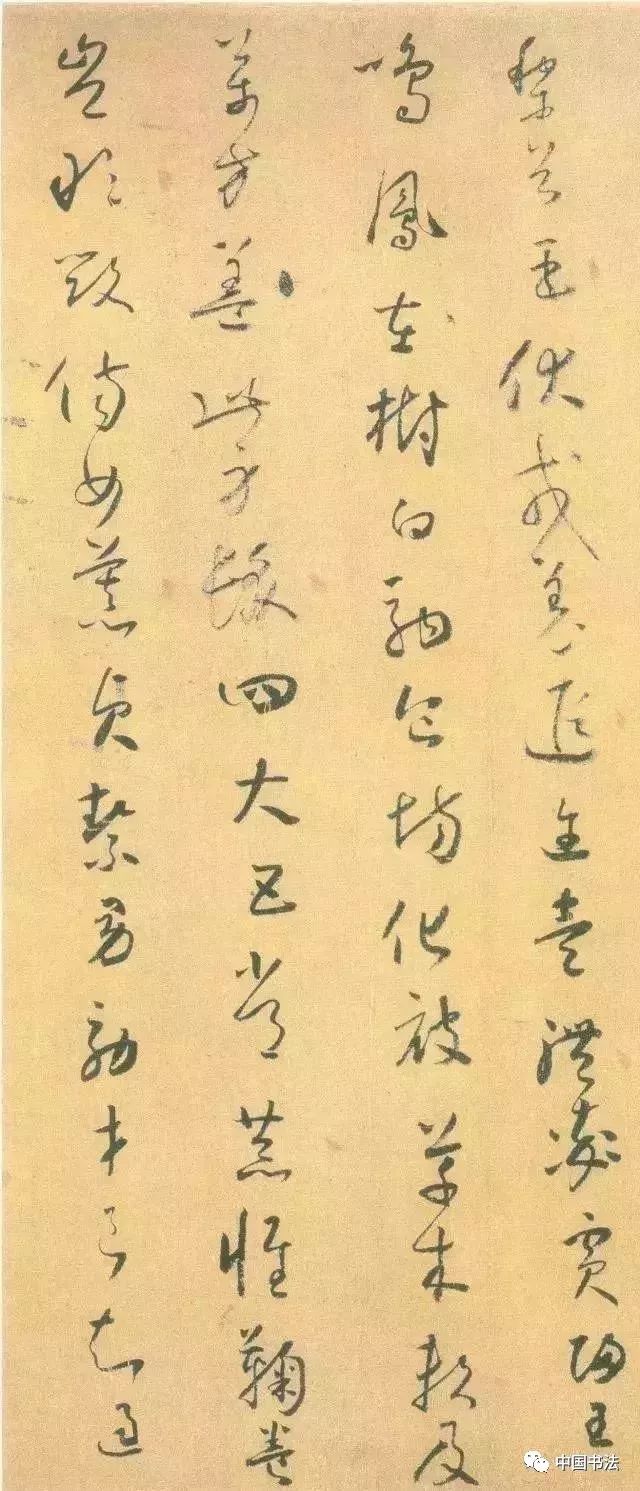 黎首臣伏戎羌遐邇壹體率賓歸王
鳴鳳在樹白駒食場化被草木賴及
萬方蓋此身髮四大五常恭惟鞠養
豈敢毀傷女慕貞絜男效才良知過
中国书法